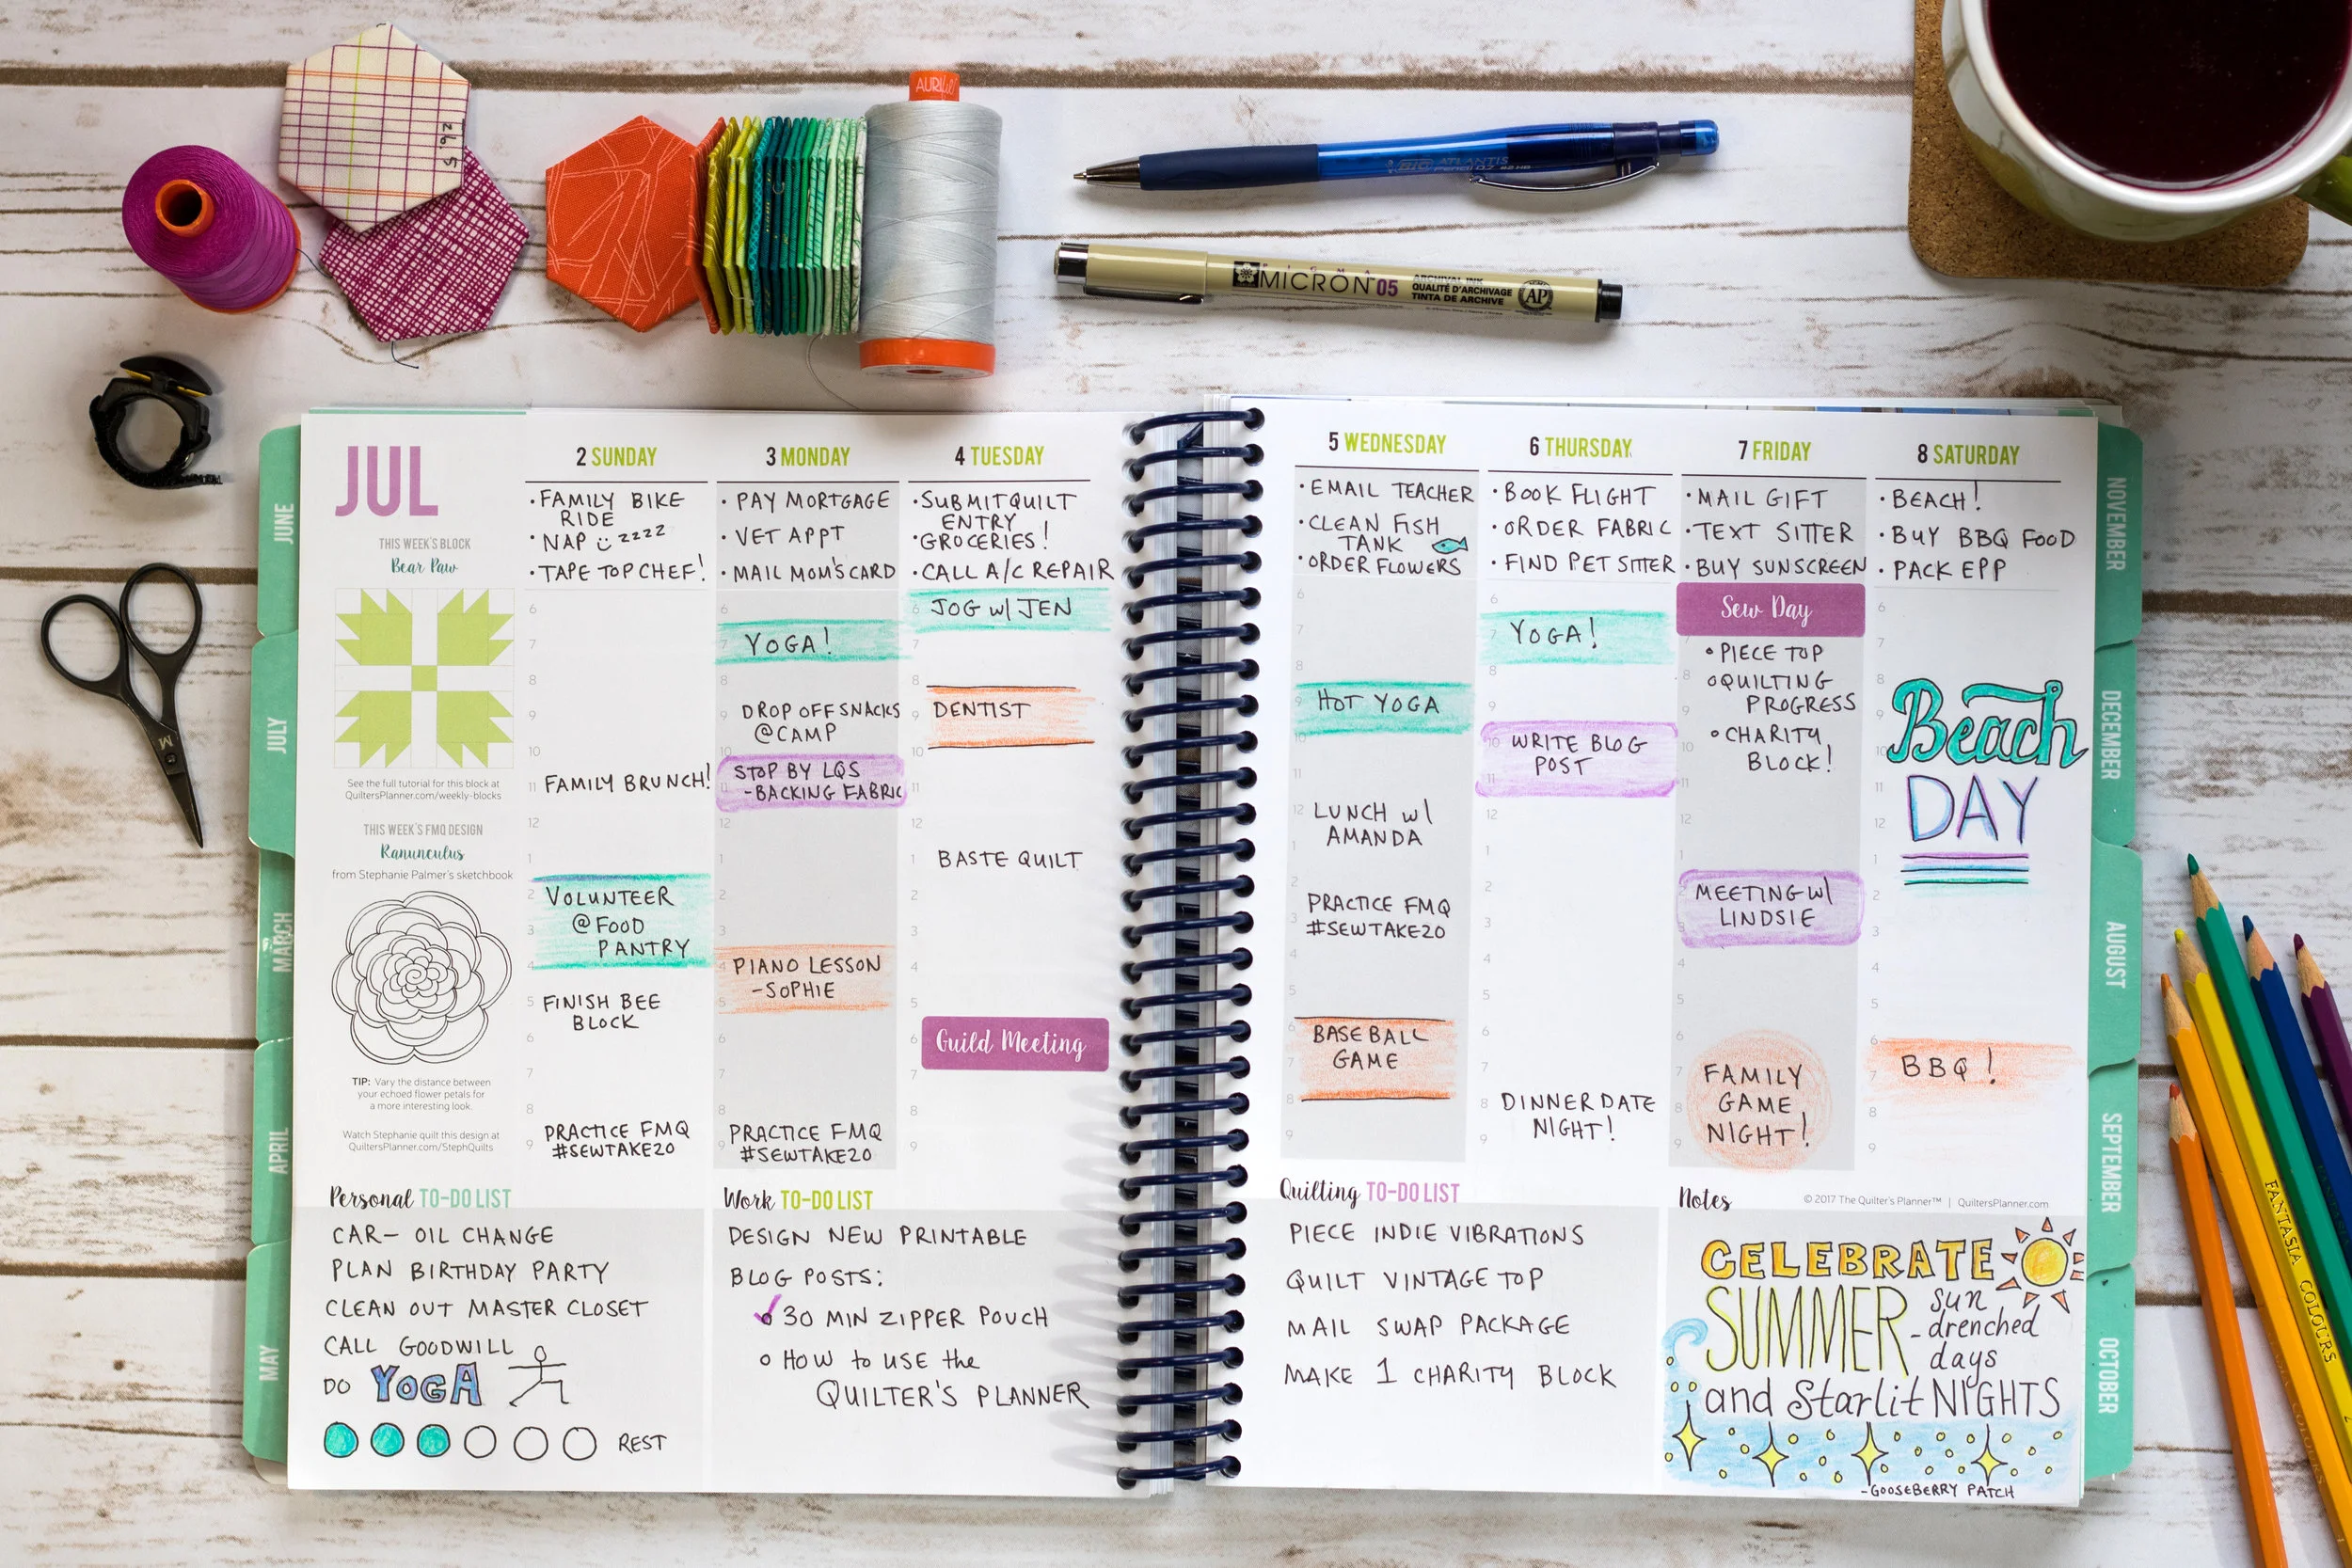 AURIfil
BIC ATLANTIS
MICRON 05
ARCHIVAL INK
QUALITÉ D'ARCHIVAGE
TINTA DE ARCHIVE
AP
JUNE
JULY
MARCH
APRIL
MAY
JUL
THIS WEEK'S BLOCK
Bear Paw
See the full tutorial for this block at
QuiltersPlanner.com/weekly-blocks
THIS WEEK'S FMQ DESIGN
Ranunculus
from Stephanie Palmer's sketchbook
TIP: Vary the distance between
your echoed flower petals for
a more interesting look.
Watch Stephanie quilt this design at
QuiltersPlanner.com/StephQuilts
2 SUNDAY
• FAMILY BIKE
RIDE
• NAP zzzz
• TAPE TOP CHEF!
6
7
8
9
10
11 FAMILY BRUNCH!
12
1
2 VOLUNTEER
3 @ FOOD
PANTRY
4
5 FINISH BEE
BLOCK
6
7
8
PRACTICE FMQ
9 #SEWTAKE20
3 MONDAY
• PAY MORTGAGE
• VET APPT
• MAIL MOM'S CARD
6
7 YOGA!
8
9 DROP OFF SNACKS
@ CAMP
10
STOP BY LQS
11 -BACKING FABRIC
12
1
2
3
4 PIANO LESSON
5 -SOPHIE
6
7
8
PRACTICE FMQ
9 #SEWTAKE20
4 TUESDAY
• SUBMIT QUILT
ENTRY
• GROCERIES!
• CALL A/C REPAIR
6 JOG w/ JEN
7
8
9 DENTIST
10
11
12
1 BASTE QUILT
2
3
4
5
6 Guild Meeting
7
8
9
5 WEDNESDAY
• EMAIL TEACHER
• CLEAN FISH
TANK
• ORDER FLOWERS
6
7
8
9 HOT YOGA
10
11
12 LUNCH w/
AMANDA
2
PRACTICE FMQ
3 #SEWTAKE20
4
5
6 BASEBALL
7 GAME
8
9
6 THURSDAY
• BOOK FLIGHT
• ORDER FABRIC
• FIND PET SITTER
6
7 YOGA!
8
9
10 WRITE BLOG
POST
11
12
1
2
3
4
5
6
7
8 DINNER DATE
9 NIGHT!
7 FRIDAY
• MAIL GIFT
• TEXT SITTER
• BUY SUNSCREEN
Sew Day
7
• PIECE TOP
8 o QUILTING
9 PROGRESS
10 • CHARITY
BLOCK!
11
12
1
MEETING w/
LINDSIE
4
5
6
7 FAMILY
8 GAME
9 NIGHT!
8 SATURDAY
• BEACH!
• BUY BBQ FOOD
• PACK EPP
6
7
8
9 Beach
10
11 DAY
12
1
2
3
4
5
6
7 BBQ!
8
9
Personal TO-DO LIST
CAR- OIL CHANGE
PLAN BIRTHDAY PARTY
CLEAN OUT MASTER CLOSET
CALL GOODWILL
DO YOGA
REST
Work TO-DO LIST
DESIGN NEW PRINTABLE
BLOG POSTS:
30 MIN ZIPPER POUCH
o HOW to USE the
QUILTER'S PLANNER
Quilting TO-DO LIST
PIECE INDIE VIBRATIONS
QUILT VINTAGE TOP
MAIL SWAP PACKAGE
MAKE 1 CHARITY BLOCK
Notes
© 2017 The Quilter's Planner™ | QuiltersPlanner.com
CELEBRATE
SUMMER - sun
drenched
days
and Starlit NIGHTS
-GOOSEBERRY PATCH
NOVEMBER
DECEMBER
AUGUST
SEPTEMBER
OCTOBER
FANTASIA COLOURS